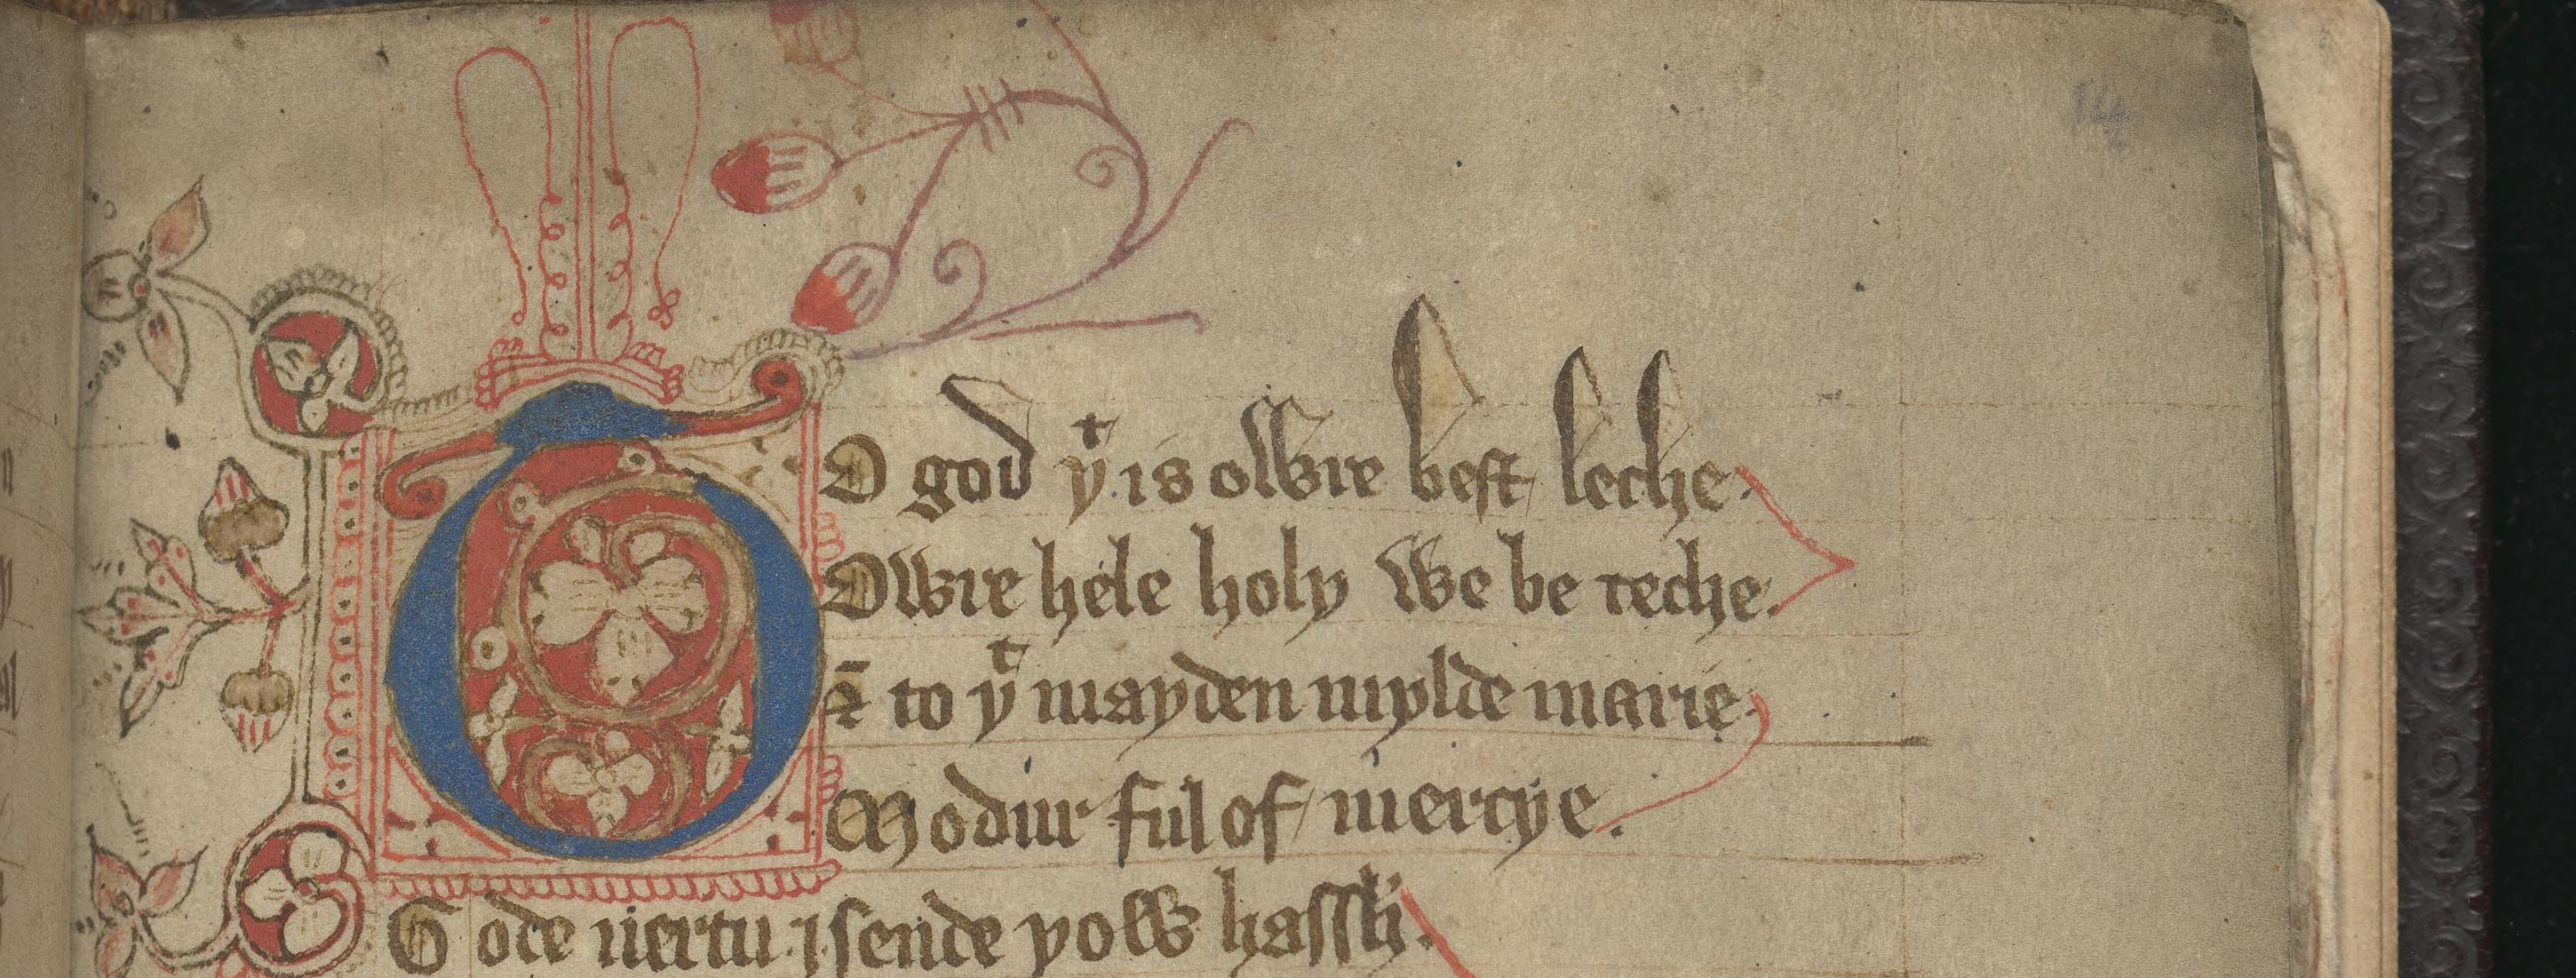 14
O god yͭ is oWre best leche
Owre hele holy We be teche.
⁊ to yͭ mayden mylde marie.
Modur ful of mercye.
Gode uertu i sende yoW